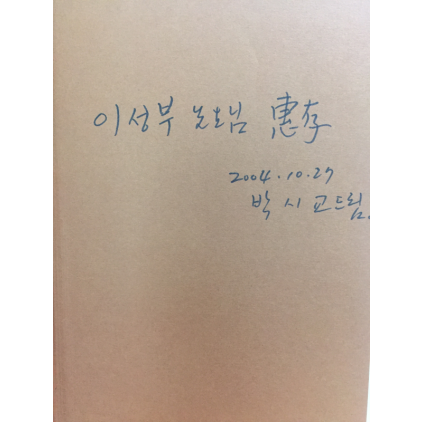 이성부 선생님 惠存
2004.10.27
박시교드림.